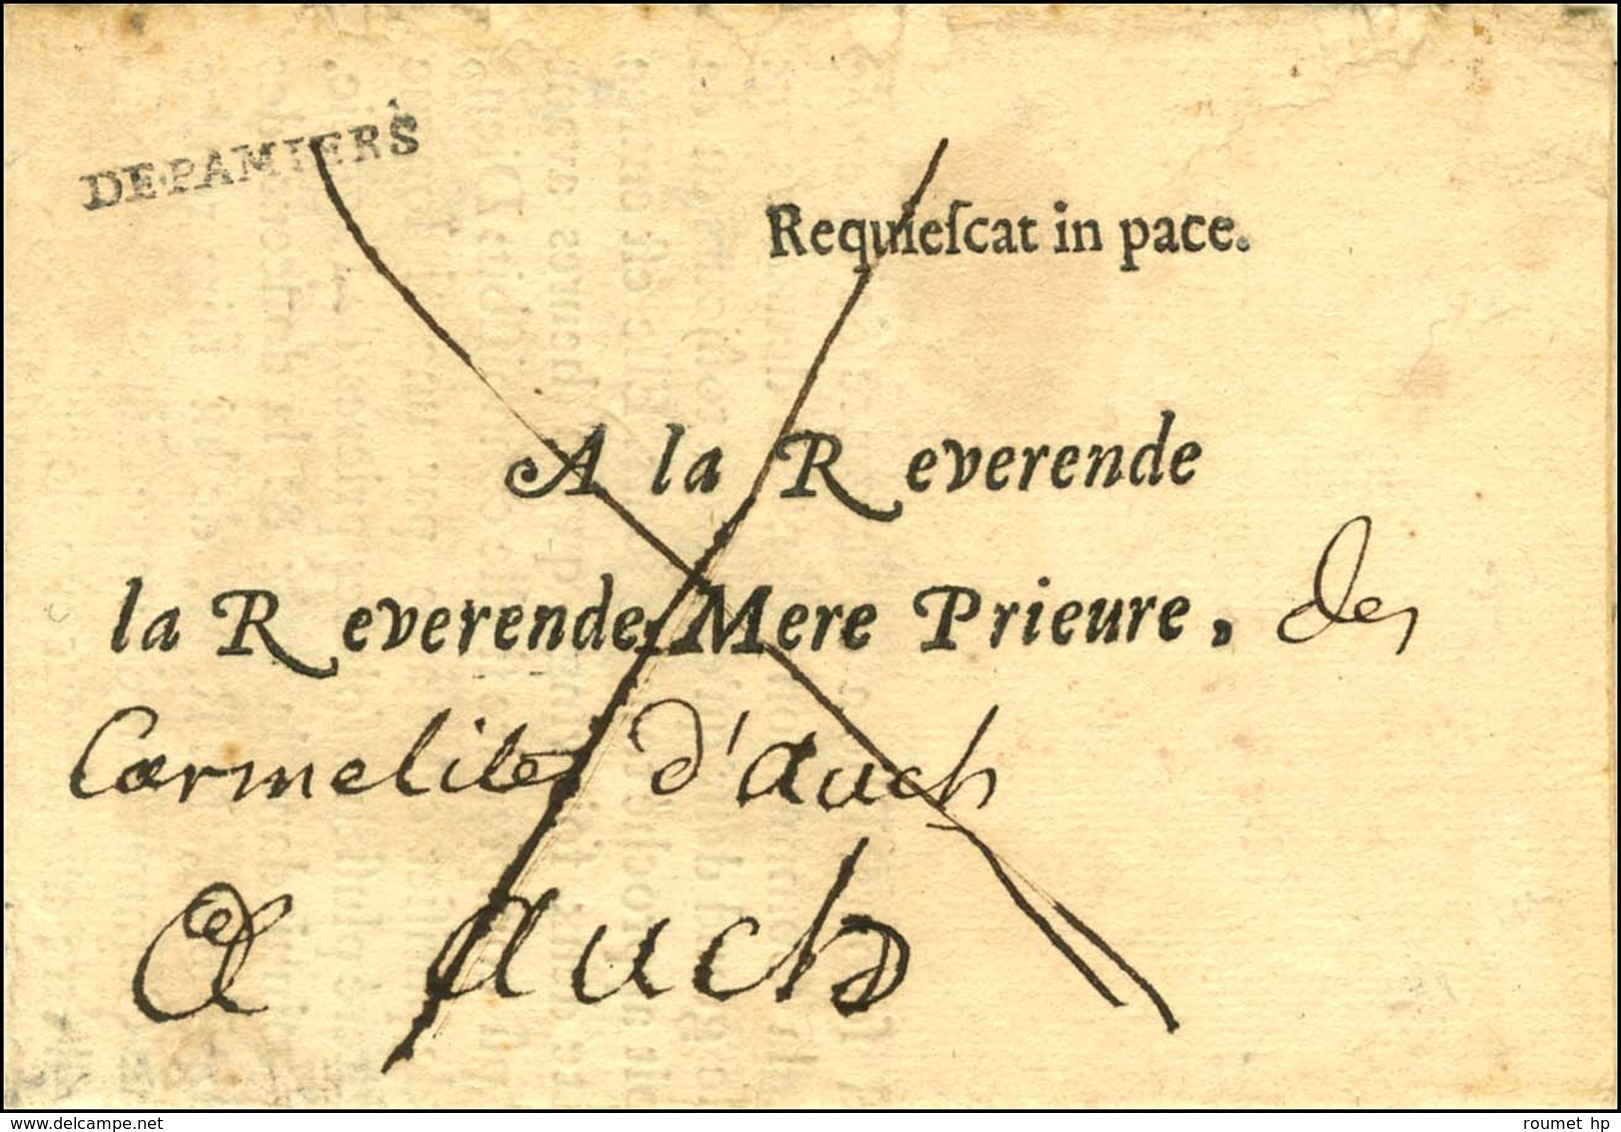 DE.PAMIERS
Requieſcat in pace.
A la Reverende
la Reverende Mere Prieure, des
Carmelites d'auch
A auch
www.delcampe.net
roumet hp